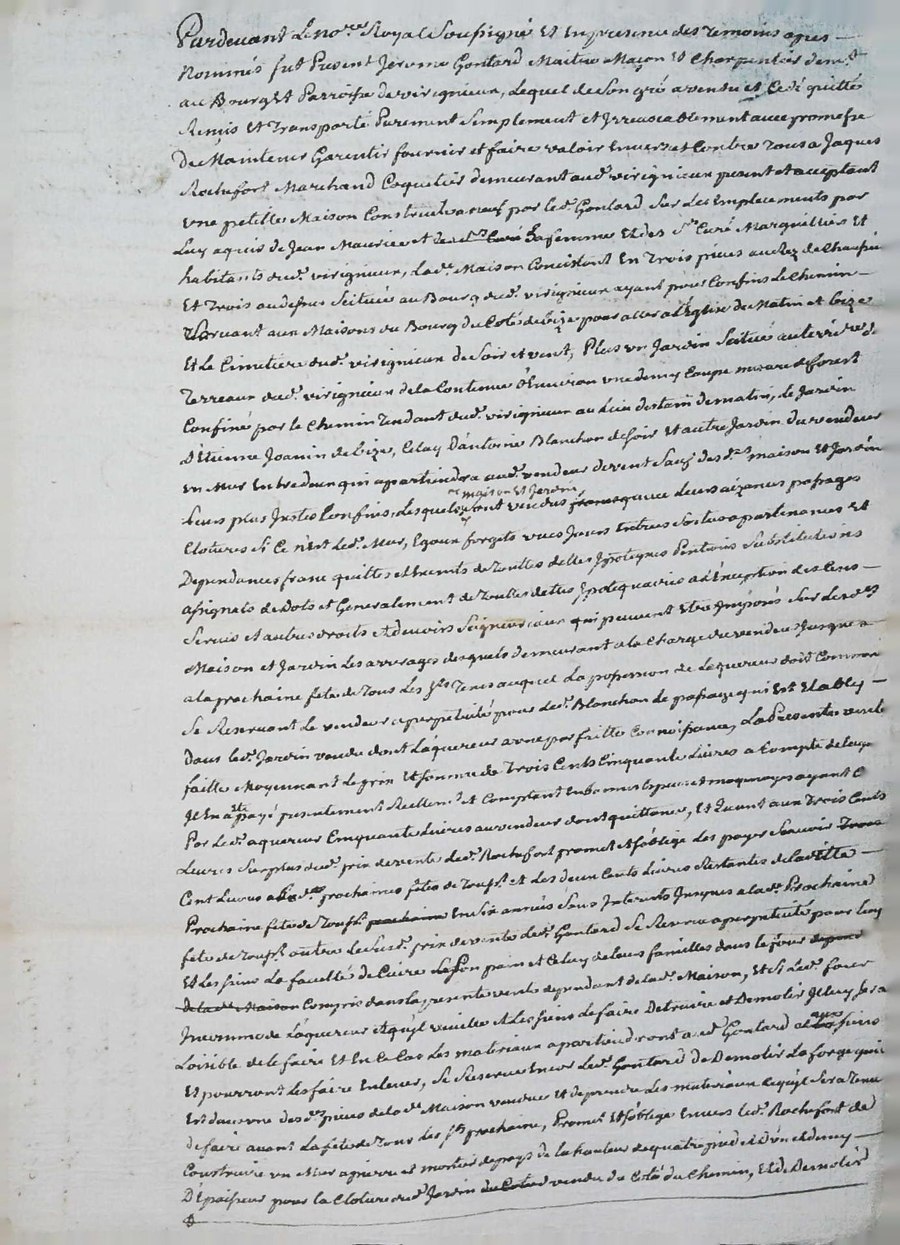 Pardevant Le no.re Royal Soussigné Et En presence des temoins apres
Nommés fut Present Jerome Gontard Maitre Maçon Et Charpentier dem.t
au Bourg Et Parroisse de virignieux, Lequel de Son gré a vendu et Cedé quitté
Remis Et Transporté Purement Simplement et Irrevocablement avec promesse
De Maintenir Garentir fournir et faire valoir Envers et Contre Tous a Jaques
Rochefort Marchand Coquetier demeurant aud. virignieux present et acceptant
une petitte Maison Construitte a neuf par led. Gontard Sur Les Emplacements par
Luy aquis de Jean Maurice et sa femme Et des S.rs Curé Marguilliers Et
habitants dud. virignieux, Lad. Maison Concistant En Trois pieces au Rez de Chaussé
Et Trois au dessus Scituée au Bourg dud. virignieux ayant pour Confins Le Chemin
Servant aux Maisons du Bourg du Coté de bize pour aller a L'Eglise de Matin et bize
Et Le Cimetiere dud. virignieux de Soir et vent, Plus un Jardin Scitué au terr.re de
Terreaux dud. virignieux de la Contenue d'Environ une demy Coupe mesure de forest
Confiné par le Chemin Tendant dud. virignieux au Lieu de de matin, le Jardin
D'Etienne Joanin de bize, Celuy D'antoine Blanchon de Soir Et autre Jardin du vendeur
un Mur Entredeux qui apartiendra aud. vendeur de vent Sauf desd. maison Et Jardin
Leurs plus Justes Confins, Lesquels maison Et Jardin Sont vendus avec Leurs aizances passages
Clotures Si Ce n'est Led. Mur, Egoux forgets vues Jours Entrées Sorties apartenances Et
Dependances franc quittes et Exempts de Touttes dettes Ipoteques Pentions Substitutions
assignats de Dots et Generalement de Touttes dettes Ipotequaires a L'Exception des Cens
Servis et autres droits et devoirs Seigneuriaux qui peuvent Etre Imposés Sur Lesd.
Maison et Jardin Les arrerages desquels demeurant a la Charge du vendeur Jusques a
a la prochaine fete de Tous Les S.ts Tems auquel La possession de L'aquereur doit Commencer
Se Reservant Le vendeur a perpetuité pour Led. Blanchon Le passage qui Est Etably
Dans led. Jardin vendu dont L'aquereur a une parfaitte Connoissance, La Presente vente
faitte Moyennant Le prix Et Somme de Trois Cents Cinquante Livres a Compte de laquelle
Il En a Eté payé presentement Reellem.t et Comptant En bonnes Especes et monnoyes ayant C
Par Led. aquereur Cinquante Livres au vendeur dont quittance, Et Quant aux Trois Cents
Livres Surplus dud. prix de vente Led. Rochefort promet Et S'oblige Les payer Scavoir
Cent Livres prochaines fetes de Touss.t et Les deux Cents Livres Restantes de
Prochaine fete de Touss.t En Six années Sans Interets Jusques a lad. Prochaine
fete de Touss.t outre Le Susd. prix de vente Led. Gontard Se Reserve a perpetuité pour Luy
Et Les Siens La faculté de Cuire Son pain et Celuy de Leurs familles dans le four
Compris dans la presente vente dependant de lad. Maison, Et Si Led. four
Incommode L'aquereur Et qu'yl veuille et Les Siens Le faire Detruire et Demolir Il Luy Sera
Loisible de le faire Et En Ce Cas Les materiaux apartiendront aud. Gontard Et aux Siens
Et pourront Les faire Enlever, Se Reserve Encor Led. Gontard De Demolir La forge qui
Est dans une desd. pieces de lad. Maison vendues Et de prendre Les materiaux Ce qu'yl Sera Tenu
de faire avant La fete de Tous Les S.ts prochaine, Promet Et S'oblige Envers Led. Rochefort de
Construire un Mur a pierre et mortier de pays de la hauteur de quatre pied et D'un et demy
D'Epaisseur pour la Cloture dud. Jardin vendu du Coté du Chemin, Et de Demolir